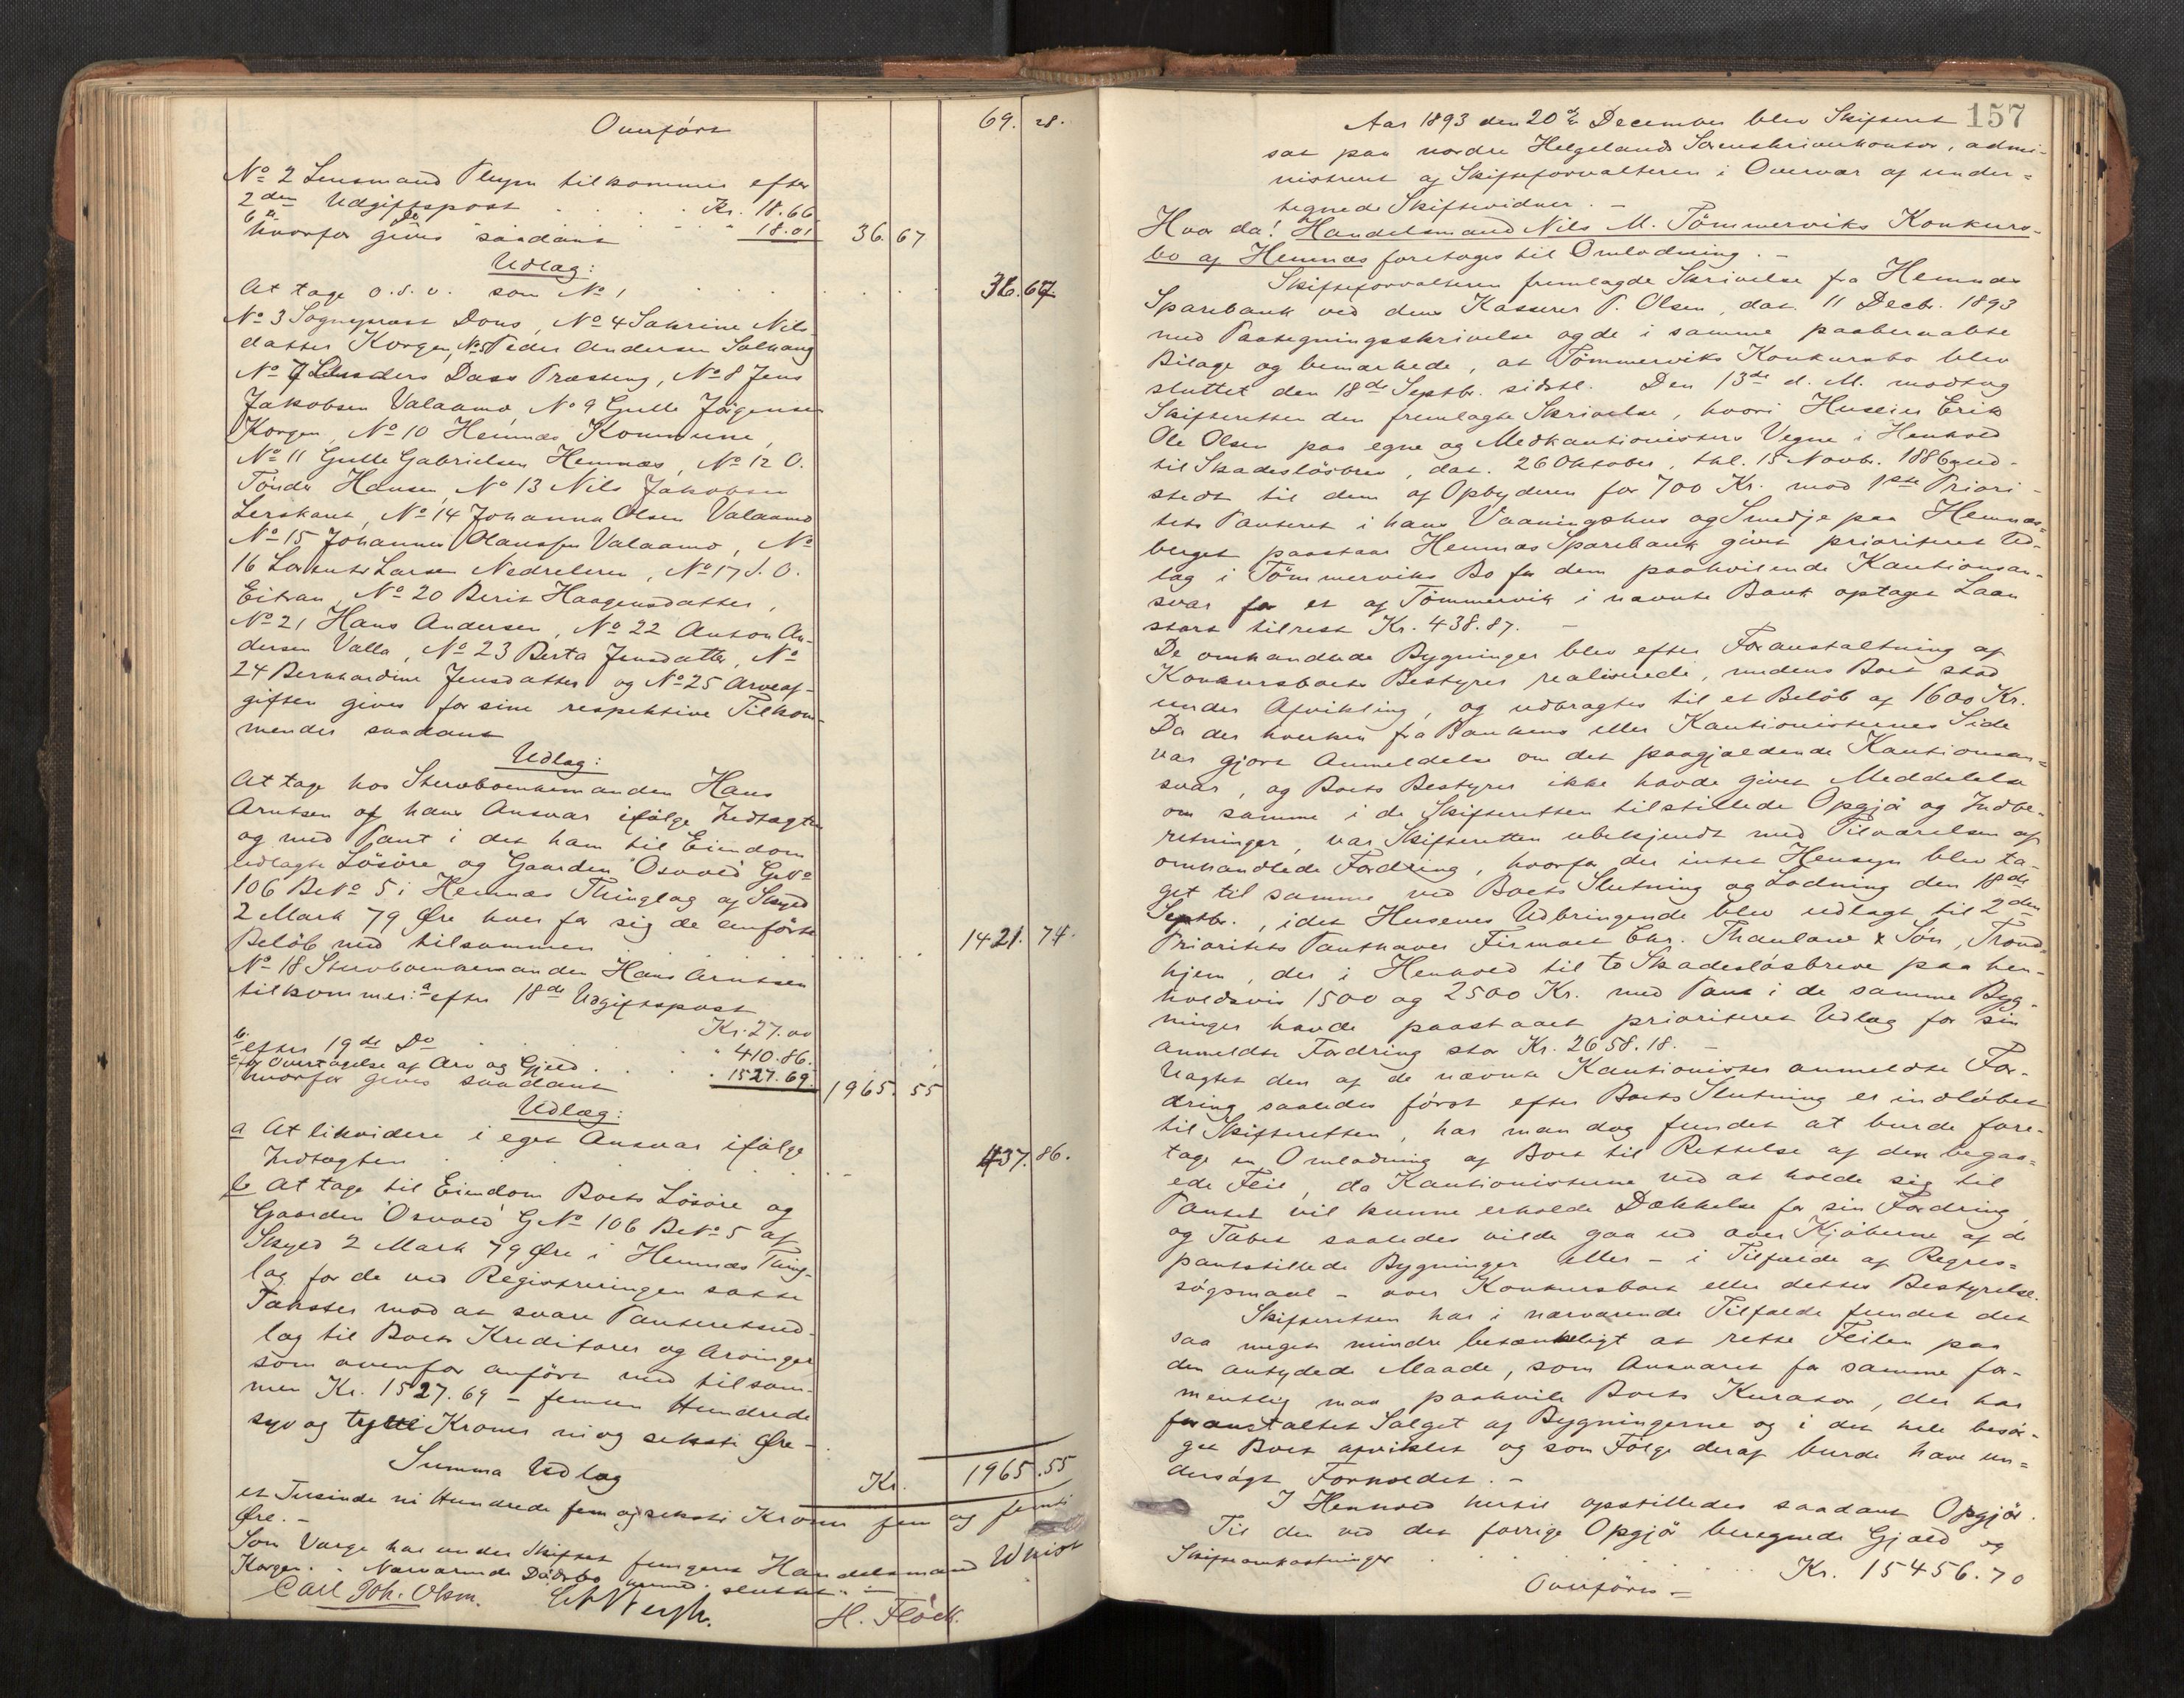 Overført 69. 28.
No 2 Lensmand Pleym tilkommer efter
2den Udgiftspost . . . . Kr. 18.66
6te Do . . . " 18.01
hvorfor gives saadant 36. 67
Udlæg:
At tage o. s. v. som No 1 . . . . . 36.67
No 3 Sogneprest Dons, No 4 Sakrine Nils-
datter Korgen, No 5 Peder Andersen Solhaug
No 7 Anders Dass Præsteng, No 8 Jens
Jakobsen Valaamo, No 9 Gulle Jörgensen
Korgen, No 10 Hemnæs Kommune,
No 11 Gulle Gabrielsen Hemnæs, No 12 O.
Tönder Hansen, No 13 Nils Jakobsen
Lerskart, No 14 Johanna Olsen Valaamo
No 15 Johannes Olaussen Valaamo, No
16 Larsen Nedreleren, No 17 J. O.
Eitran, No 20 Berit Haagensdatter,
No 21 Hans Andersen, No 22 Anton An-
dersen Valla, No 23 Berta Jensdatter, No
24 Bernhardine Jensdatter og No 25 Arveaf-
giften gives for sine respektive Tilkom-
mender saadant
Udlæg:
At tage hos Stervboenkemanden Hans
Arntsen af hans Ansvar ifölge Indtægten
og med Pant i det ham til Eiendom
udlagte Lösöre og Gaarden Osvold GNo
106 BrNo 5 i Hemnæs Thinglag af Skyld
2 Mark 79 Øre hver for sig de anförte
Belöb med tilsammen . . . . 1421. 74.
No 18 Stervboenkemanden Hans Arntsen
tilkommer: a efter 18de Udgiftspost
Kr. 27.00
b. efter 19de Do . . . " 410.86.
c for Overtagelse af Arv og Gjeld . . . " 1527.69
hvorfor gives saadant 1965. 55
Udlæg:
a At likvidere i eget Ansvar ifölge
Indtægten . . . . . 437. 86.
b At tage til Eiendom Boets Lösöre og
Gaarden Osvold GNo 106 BrNo 5 af
Skyld 2 Mark 79 Øre i Hemnæs Thing-
lag for de ved Registreringen satte
Takster mod at svare Panteretsud-
læg til Boets Kreditorer og Arvinger
som ovenfor anfört med tilsam-
men Kr. 1527.69 - femten Hundrede
syv og tyve Kroner ni og seksti Øre -
Summa Udlæg Kr. 1965.55
et Tusinde ni Hundrede fem og seksti Kroner fem og femti
Øre. -
Som Værge har under Skiftet fungeret Handelsmand Whist
Korgen. - Nærværende Dödsbo sluttet. -
Carl Joh. Olsen. H. Flöck.
157
Aar 1893 den 20de December blev Skifteret
sat paa nordre Helgelands Sorenskriverkontor, admi-
nistreret af Skifteforvalteren i Overvær af under-
tegnede Skiftevidner. -
Hvor da! Handelsmand Nils M. Tömmerviks Konkurs-
bo af Hemnæs foretages til Omlodning. -
Skifteforvalteren fremlagde Skrivelse fra Hemnæs
Sparebank ved dens Kasserer P. Olsen, dat. 11 Decbr. 1893
med Paategningsskrivelse og de i samme paaberaabte
Bilage og bemærkede, at Tömmerviks Konkursbo blev
sluttet den 18de Septbr. sidstl. Den 13de d. M. modtog
Skifteretten den fremlagte Skrivelse, hvori Huseier Erik
Ole Olsen paa egne og Medkautionisters Vegne i Henhold
til Skadeslösbrev, dat. 26 Oktober, thl. 15 Novbr. 1886 ud-
stedt til dem af Opbyderen for 700 Kr. mod 1ste Priori-
tets Panteret i hans Vaaningshus og Smedje paa Hemnæs-
berget paastaar Hemnæs Sparebank givet prioriteret Ud-
læg i Tömmerviks Bo for dem paahvilende Kautionsan-
svar for et af Tömmervik i nævnte Bank optaget Laan
stort tilrest Kr. 438.87. -
De omhandlede Bygninger blev efter Foranstaltning af
Konkursboets Bestyrer realiserede, medens Boet stod
under Afvikling, og udbragtes til et Belöb af 1600 Kr.
Da der hverken fra Bankens eller Kautionisternes Side
var gjort Anmeldelse om det paagjældende Kautionsan-
svar, og Boets Bestyrer ikke havde givet Meddelelse
om samme i de Skifteretten tilstillede Opgjör og Indbe-
retninger, var Skifteretten ubekjendt med Tilværelsen af
omhandlede Fordring, hvorfor der intet Hensyn blev ta-
get til samme ved Boets Slutning og Lodning den 18de
Septbr., idet Husenes Udbringende blev udlagt til 2den
Prioritets Panthaver Firmaet Chr. Thaulow & Sön, Trond-
hjem, der i Henhold til to Skadeslösbreve paa hen-
holdsvis 1500 og 2500 Kr. med Pant i de samme Byg-
ninger havde paastaaet prioriteret Udlæg for sin
anmeldte Fordring stor Kr. 2658.18. -
Uagtet den af de nævnte Kautionister anmeldte For-
dring saaledes först efter Boets Slutning er indlöbet
til Skifteretten, har man dog fundet at burde fore-
tage en Omlodning af Boet til Rettelse af den begaa-
ede Feil, da Kautionisterne ved at holde sig til
Pantet vil kunne erholde Dækkelse for sin Fordring,
og Tabet saaledes vilde gaa ud over Kjöberne af de
pantstillede Bygninger eller - i Tilfælde af Regres-
sögsmaal - over Konkursboet eller dettes Bestyrelse.
Skifteretten har i nærværende Tilfælde fundet det
saa meget mindre betænkeligt at rette Feilen paa
den antydede Maade, som Ansvaret for samme for-
mentlig maa paahvile Boets Kurator, der har
foranstaltet Salget af Bygningerne og i det hele besör-
get Boet afviklet og som Fölge deraf burde have un-
dersögt Forholdet. -
I Henhold hertil opstilledes saadant Opgjör.
Til den ved det forrige Opgjör beregnede Gjæld og
Skifteomkostninger . . . . . Kr. 15456.70
Overföres -